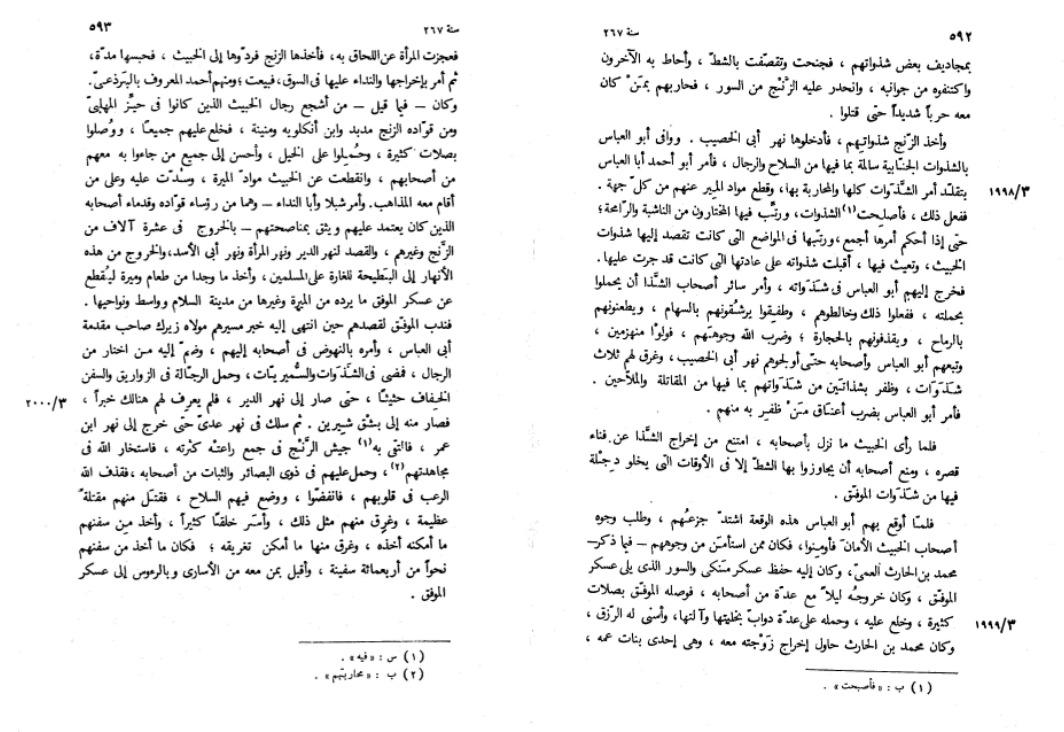 ٥٩٢
سنة ٢٦٧
بمجاديف بعض شذواتهم ، فجنحت وتقصّفت بالشطّ ، وأحاط به الآخرون
واكتنفوه من جوانبه ، وانحدر عليه الزَّنْج من السور ، فحاربهم بمَنْ كان
معه حرباً شديداً حتى قتلوا .
وأخذ الزّنج شذواتهم ، فأدخلوها نهر أبى الخصيب . ووافى أبو العباس
بالشذوات الجنّابية سالمة بما فيها من السلاح والرجال ، فأمر أبو أحمد أبا العباس
١٩٩٨/٣
بتقلّد أمر الشَّذوات كلها والمحاربة بها، وقطع مواد المير عنهم من كلّ جهة .
ففعل ذلك ، فأصلِحت(١) الشذوات، ورتّب فيها المختارون من الناشبة والرّامحة؛
حتى إذا أحكم أمرها أجمع، ورتّبها فى المواضع التى كانت تقصد إليها شذوات
الخبيث، وتعيث فيها ، أقبلت شذواته على عادتها التى كانت قد جرت عليها .
فخرج إليهم أبو العباس فى شذَواته ، وأمر سائر أصحاب الشَّذا أن يحملوا
بحملته ، ففعلوا ذلك وخالطوهم ، وطفِقوا يرشُقونهم بالسهام ، ويطعنونهم
بالرماح ، ويقذفونهم بالحجارة ؛ وضرب الله وجوههم ، فولَّوْا منهزمين ،
وتبعهم أبو العباس وأصحابه حتى أولجوهم نهر أبى الخصيب، وغرق لهم ثلاث
شذَوَات ، وظفر بشذاتين من شذَواتهم بما فيها من المقاتلة والملاّحين .
فأمر أبو العباس بضرب أعناق مَنْ ظفِير به منهم .
فلما رأى الخبيث ما نزل بأصحابه ، امتنع من إخراج الشَّذا عن فناء
قصره ، ومنع أصحابه أن يجاوزوا بها الشطّ إلا فى الأوقات التى يخلو دِجْلة
فيها من شذَوات الموفق .
فلمّا أوقع بهم أبو العباس هذه الوقعة اشتدّ جزعُهم ، وطلب وجوه
أصحاب الخبيث الأمانَ فأومِنوا، فكان ممن استأمن من وجوههم – فيما ذكر–
محمد بن الحارث العمىّ، وكان إليه حفظ عسكر منكى والسور الذى يلى عسكر
الموفق ، وكان خروجُه ليلاً مع عدة من أصحابه ، فوصله الموفق بصلات
١٩٩٩/٣
كثيرة ، وخلع عليه ، وحمله على عدّة دوابّ بحليتها وآلتها، وأسنى له الرّزق ،
وكان محمد بن الحارث حاول إخراج زَوْجته معه ، وهى إحدى بنات عمه ،
(١) ب : «فأصبحت» .
سنة ٢٦٧
٥٩٣
فعجزت المرأة عن اللحاق به، فأخذها الزنج فردّوها إلى الخبيث ، فحبسها مدّة،
ثم أمر بإخراجها والنداء عليها فى السوق، فبيعت؛ ومنهم أحمد المعروف بالبرذعىّ.
وكان – فيما قيل – من أشجع رجال الخبيث الذين كانوا فى حيّز المهلبىّ
ومن قوّاده الزنج مدبد وابن أنكلويه ومنينة ، فخلع عليهم جميعًا ، ووُصلوا
بصلات كثيرة ، وحُمِلوا على الخيل ، وأحسن إلى جميع من جاءوا به معهم
من أصحابهم ، وانقطعت عن الخبيث موادّ الميرة ، وسُدّت عليه وعلى من
أقام معه المذاهب. وأمر شبلا وأبا النداء – وهما من رؤساء قوّاده وقدماء أصحابه
الذين كان يعتمد عليهم ويثق بمناصحتهم – بالخروج فى عشرة آلاف من
الزَّنج وغيرهم ، والقصد لنهر الدير ونهر المرأة ونهر أبى الأسد، والخروج من هذه
الأنهار إلى البَطيحة للغارة على المسلمين ، وأخذ ما وجدا من طعام وميرة ليُقطع
عن عسكر الموفق ما يرده من الميرة وغيرها من مدينة السلام وواسط ونواحيها .
فندب الموفق لقصدهم حين انتهى إليه خبر مسيرهم مولاه زيرك صاحب مقدمة
أبى العباس ، وأمره بالنهوض فى أصحابه إليهم ، وضمّ إليه من اختار من
الرجال ، فمضى فى الشذوات والسُّميريّات، وحمل الرجّالة فى الزواريق والسفن
٢٠٠٠/٣
الخفاف حثيثًا ، حتى صار إلى نهر الدير ، فلم يعرف لهم هنالك خبراً ،
فصار منه إلى بشْق شِيرين . ثم سلك فى نهر عدىّ حتى خرج إلى نهر ابن
عمر ، فالتقى به(١) جيش الزَّنْج فى جمع راعتْه كثرته ، فاستخار الله فى
مجاهدتهم(٢)، وحمل عليهم فى ذوى البصائر والثبات من أصحابه ، فقذف الله
الرعب فى قلوبهم ، فانفضّوا ، ووضع فيهم السلاح ، فقتل منهم مقتلةً
عظيمة ، وغرق منهم مثل ذلك ، وأسَر خلقًا كثيراً ، وأخذ مِن سفنهم
ما أمكنه أخذه ، وغرق منها ما أمكن تغريقه ؛ فكان ما أخذ من سفنهم
نحواً من أربعمائة سفينة ، وأقبل بمن معه من الأسارى وبالرءوس إلى عسكر
الموفق .
(١) س : «فيه» .
(٢) ب : «محاربتهم» .